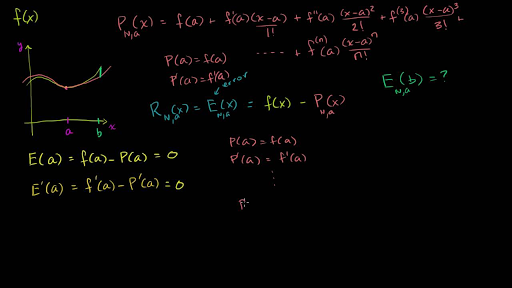 f(x)
P_{N,a}(x) = f(a) + f'(a)(x-a)/1! + f''(a) (x-a)^2/2! + f^{(3)}(a) (x-a)^3/3! +
---- + f^{(n)}(a) (x-a)^n/n!
y
P(a) = f(a)
P'(a) = f'(a)
error
E_{N,a}(b) = ?
R_{N,a}(x) = E_{N,a}(x) = f(x) - P_{N,a}(x)
a b x
P(a) = f(a)
E(a) = f(a) - P(a) = 0
P'(a) = f'(a)
E'(a) = f'(a) - P'(a) = 0
⋮